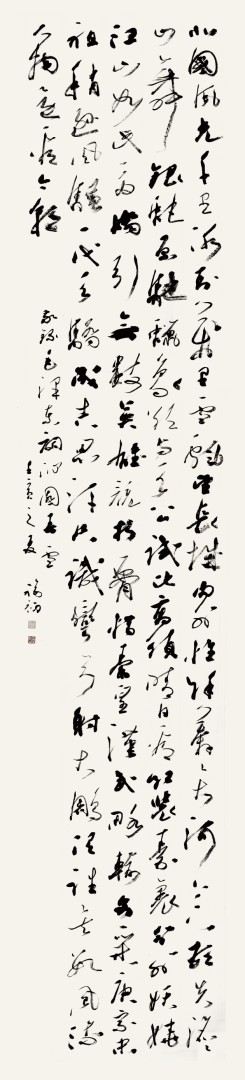 北國風光千里冰封萬里雪飄望長城內外惟餘莽莽大河上下頓失滔滔
山舞銀蛇原馳蠟象欲與天公試比高須晴日看紅裝素裹分外妖嬈
江山如此多嬌引無數英雄競折腰惜秦皇漢武略輸文采唐宗宋
祖稍遜風騷一代天驕成吉思汗只識彎弓射大鵰俱往矣數風流
人物還看今朝
敬錄毛澤東詞沁園春雪
壬寅之夏